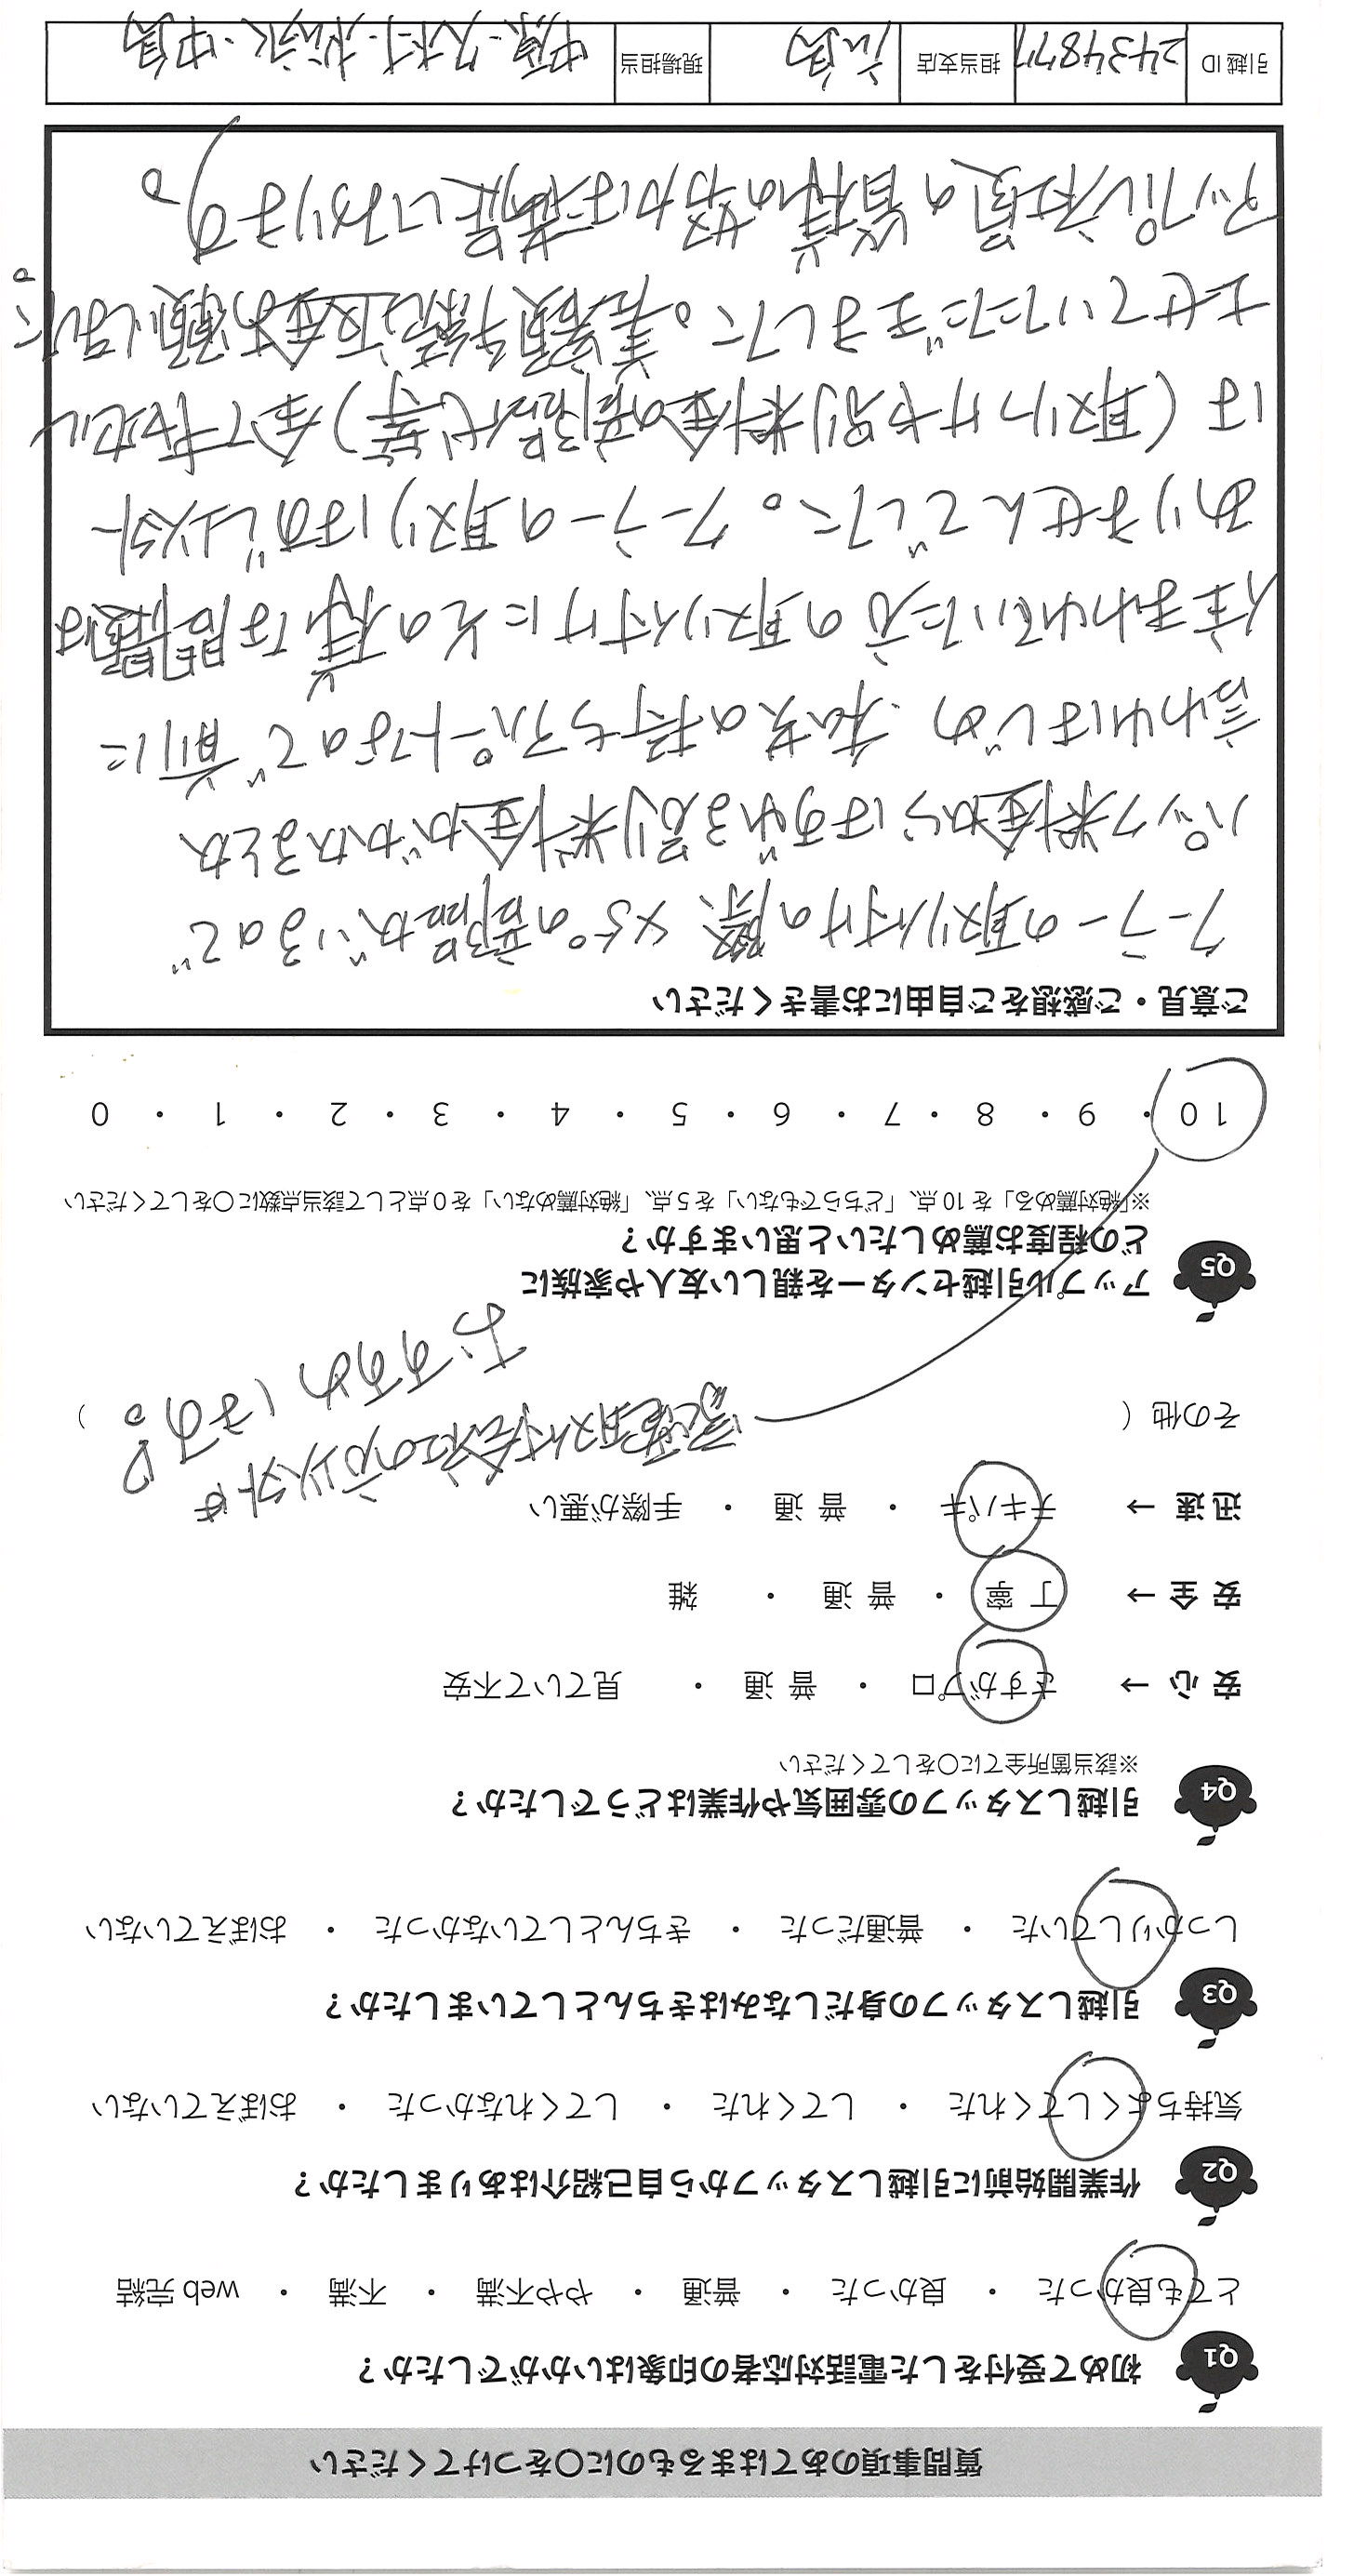 質問事項のあてはまるものに○をつけてください
Q1 初めて受付をした電話対応者の印象はいかがでしたか？
とても良かった ・ 良かった ・ 普通 ・ やや不満 ・ 不満 ・ web 完結
Q2 作業開始前に引越しスタッフから自己紹介はありましたか？
気持ちよくしてくれた ・ してくれた ・ してくれなかった ・ おぼえていない
Q3 引越しスタッフの身だしなみはきちんとしていましたか？
しっかりしていた ・ 普通だった ・ きちんとしていなかった ・ おぼえていない
Q4 引越しスタッフの雰囲気や作業はどうでしたか？
※該当箇所全てに○をしてください
安心 → さすがプロ ・ 普通 ・ 見ていて不安
安全 → 丁寧 ・ 普通 ・ 雑
迅速 → テキパキ ・ 普通 ・ 手際が悪い
その他（ ）
家電取付会社の方以外は
おすすめします。
Q5 アップル引越センターを親しい友人や家族に
どの程度お薦めしたいと思いますか？
※「絶対薦める」を 10 点、「どちらでもない」を 5 点、「絶対薦めない」を 0 点として該当点数に○をしてください
10 ・ 9 ・ 8 ・ 7 ・ 6 ・ 5 ・ 4 ・ 3 ・ 2 ・ 1 ・ 0
ご意見・ご感想をご自由にお書きください
クーラーの取り付けの際、の部品がいるので
パック料金からはずれる別料金がかかるとか
言われはじめ、私達の持ちアパートなので前に
住まわれていた方の取り付けにその様な問題は
ありませんでした。クーラーの取りはずし以外
は（取りつけや別料金の部品代等）全てキャセル
させていただきました。差額手続返金お願いしました。
アップル社員の皆様の努力は満足しております。
引越 ID 2434877 担当支店 広島 現場担当 中原・久村・松永・中島